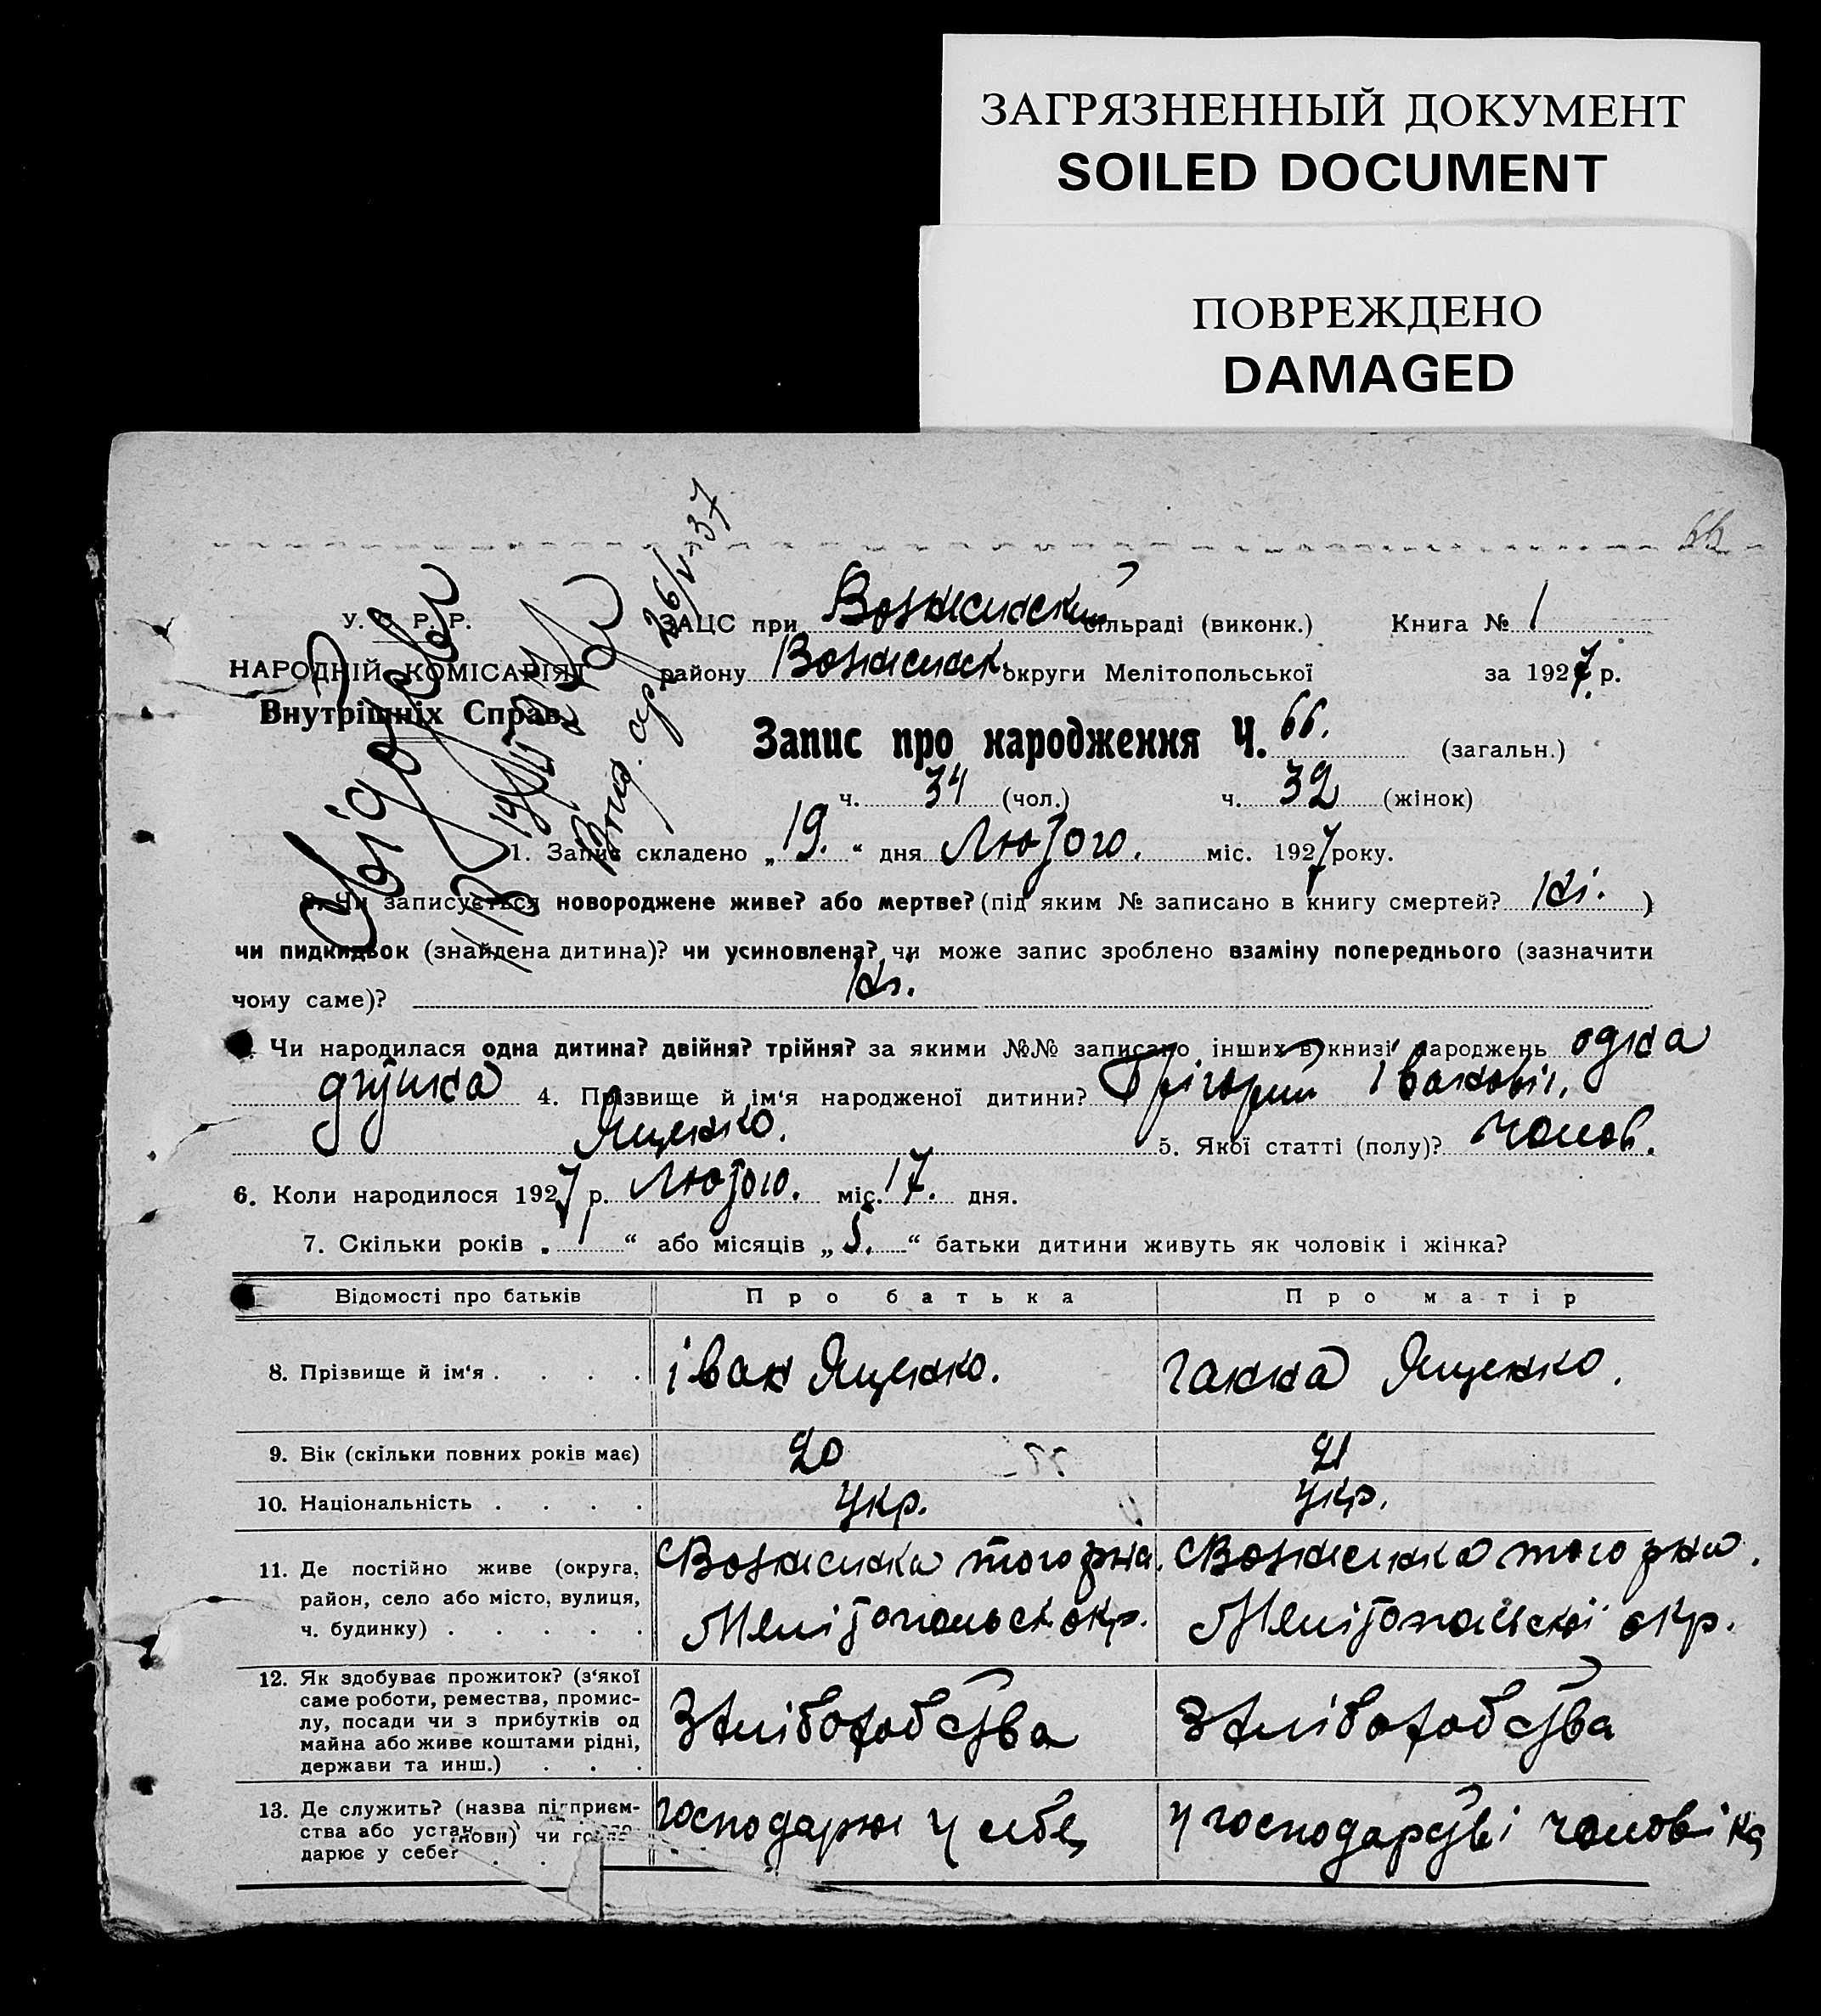 ЗАГРЯЗНЕННЫЙ ДОКУМЕНТ
SOILED DOCUMENT
ПОВРЕЖДЕНО
DAMAGED
66
У. С. Р. Р.
НАРОДНІЙ КОМІСАРІЯТ
Внутрішніх Справ.
26/V-37
ЗАЦС при Вознесинский сільраді (виконк.) Книга № 1
району Вознесинск. округи Мелітопольської за 1927 р.
Запис про народження Ч. 66. (загальн.)
ч. 34 (чол.) ч. 32 (жінок)
1. Запис складено „19.“ дня Лютого. міс. 1927 року.
2. Чи записується новороджене живе? або мертве? (під яким № записано в книгу смертей? Ні. )
чи пидкидьок (знайдена дитина)? чи усиновлена? чи може запис зроблено взаміну попереднього (зазначити
чому саме)? Ні.
Чи народилася одна дитина? двійня? трійня? за якими №№ записано інших в книзі народжень одна
дитина 4. Прізвище й ім‘я народженої дитини? Грігорий Іванович.
Ященко. 5. Якої статті (полу)? чолов.
6. Коли народилося 1927 р. Лютого. міс. 17. дня.
7. Скільки років „1“ або місяців „5.“ батьки дитини живуть як чоловік і жінка?
Відомості про батьків Про батька Про матір
8. Прізвище й ім‘я . . . . іван Ященко. ганна Ященко.
9. Вік (скільки повних років має) 20 21
10. Національність . . . . Укр. Укр.
11. Де постійно живе (округа, район, село або місто, вулиця, ч. будинку) . . . . .
СВознесинка того рна. Мелітопольск окр.
СВознесинка того рна. Мелітопольскоі окр.
12. Як здобуває прожиток? (з‘якої саме роботи, ремества, промислу, посади чи з прибутків од майна або живе коштами рідні, держави та инш.) . . .
З хліборобства
З хліборобства
13. Де служить? (назва підприємства або установи) чи господарює у себе?
господарює у себе
у господарстві чоловіка